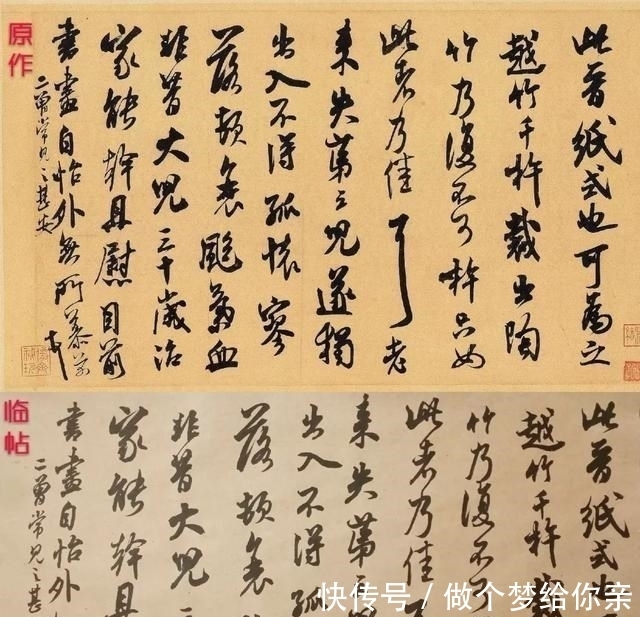 原作
此晉紙式也可為之
越竹千杵裁出陶
竹乃復不可杵只如
此者乃佳耳老
來失第三兒遂獨
出入不得孤懷寥
落頓衰氣血
非昔大兒三十歲治
家能幹且慰目前
書畫自怡外無所慕芾
二曾常見之甚安
临帖
此晉紙式
越竹千杵
竹乃復不可
此者乃佳
來失第
出入不得孤
落頓衰
非昔大兒
家能幹
書畫自怡外
二曾常見之甚
快传号/做个梦给你亲